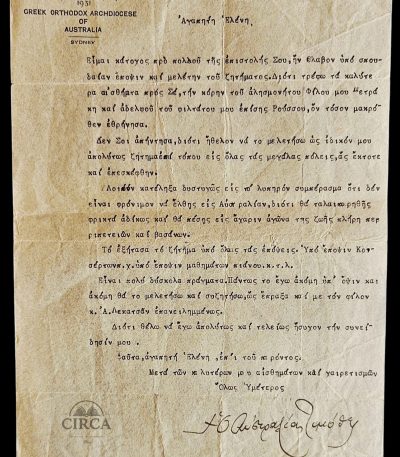 1931
GREEK ORTHODOX ARCHDIOCESE
OF
AUSTRALIA
SYDNEY
Ἀγαπητή Ἑλένη,
Εἶμαι κάτοχος πρό πολλοῦ τῆς ἐπιστολῆς Σου, ἥν ἔλαβον ὑπό σπου-
δαίαν ἔποψιν καί μελέτην τοῦ ζητήματος. Διότι τρέφω τά καλύτε
ρα αἰσθήματα πρός Σέ, τήν κόρην τοῦ ἀλησμονήτου Φίλου μου Μετρά
κη καί ἀδελφοῦ τοῦ φιλτάτου μου ἐπίσης Ρούσσου, ὅν τόσον μακρό-
θεν ἐθρήνησα.
Δέν Σοί ἀπήντησα, διότι ἤθελον νά τό μελετήσω ὡς ἰδικόν μου
ἀπολύτως ζήτημα ἐπί τόπου εἰς ὅλας τάς μεγάλας πόλεις, ἅς ἔκτοτε
καί ἐπεσκέφθην.
Λοιπόν κατέληξα δυστυχῶς εἰς τό λυπηρόν συμπέρασμα ὅτι δέν
εἶναι φρόνιμον νά ἔλθης εἰς Αὐστραλίαν, διότι θά ταλαιπωρηθῆς
φρικτά ἀδίκως καί θά πέσης εἰς ἄχαριν ἀγῶνα τῆς ζωῆς πλήρη περ
ριπετειῶν καί βασάνων.
Τό ἐξήτασα τό ζήτημα ὑπό ὅλας τάς ἐπόψεις. Ὑπό ἔποψιν Κον-
σέρτων π.χ. ὑπό ἔποψιν μαθημάτων πιάνου.κ.τ.λ.
Εἶναι πολύ δύσκολα πράγματα. Πάντως τό ἔχω ἀκόμη ὑπ' ὄψιν καί
ἀκόμη θά τό μελετήσω καί συζητήσω, ὡς ἔπραξα καί μέ τόν φίλον
κ. Ἀ. Λεκατσᾶν ἐπανειλημμένως.
Διότι θέλω νά ἔχω ἀπολύτως καί τελείως ἥσυχον τήν συνεί-
δησίν μου.
Ταῦτα, ἀγαπητή Ἑλένη, ἐπί τοῦ παρόντος.
Μετά τῶν καλυτέρων μου αἰσθημάτων καί χαιρετισμῶν
Ὅλως Ὑμέτερος
CIRCA